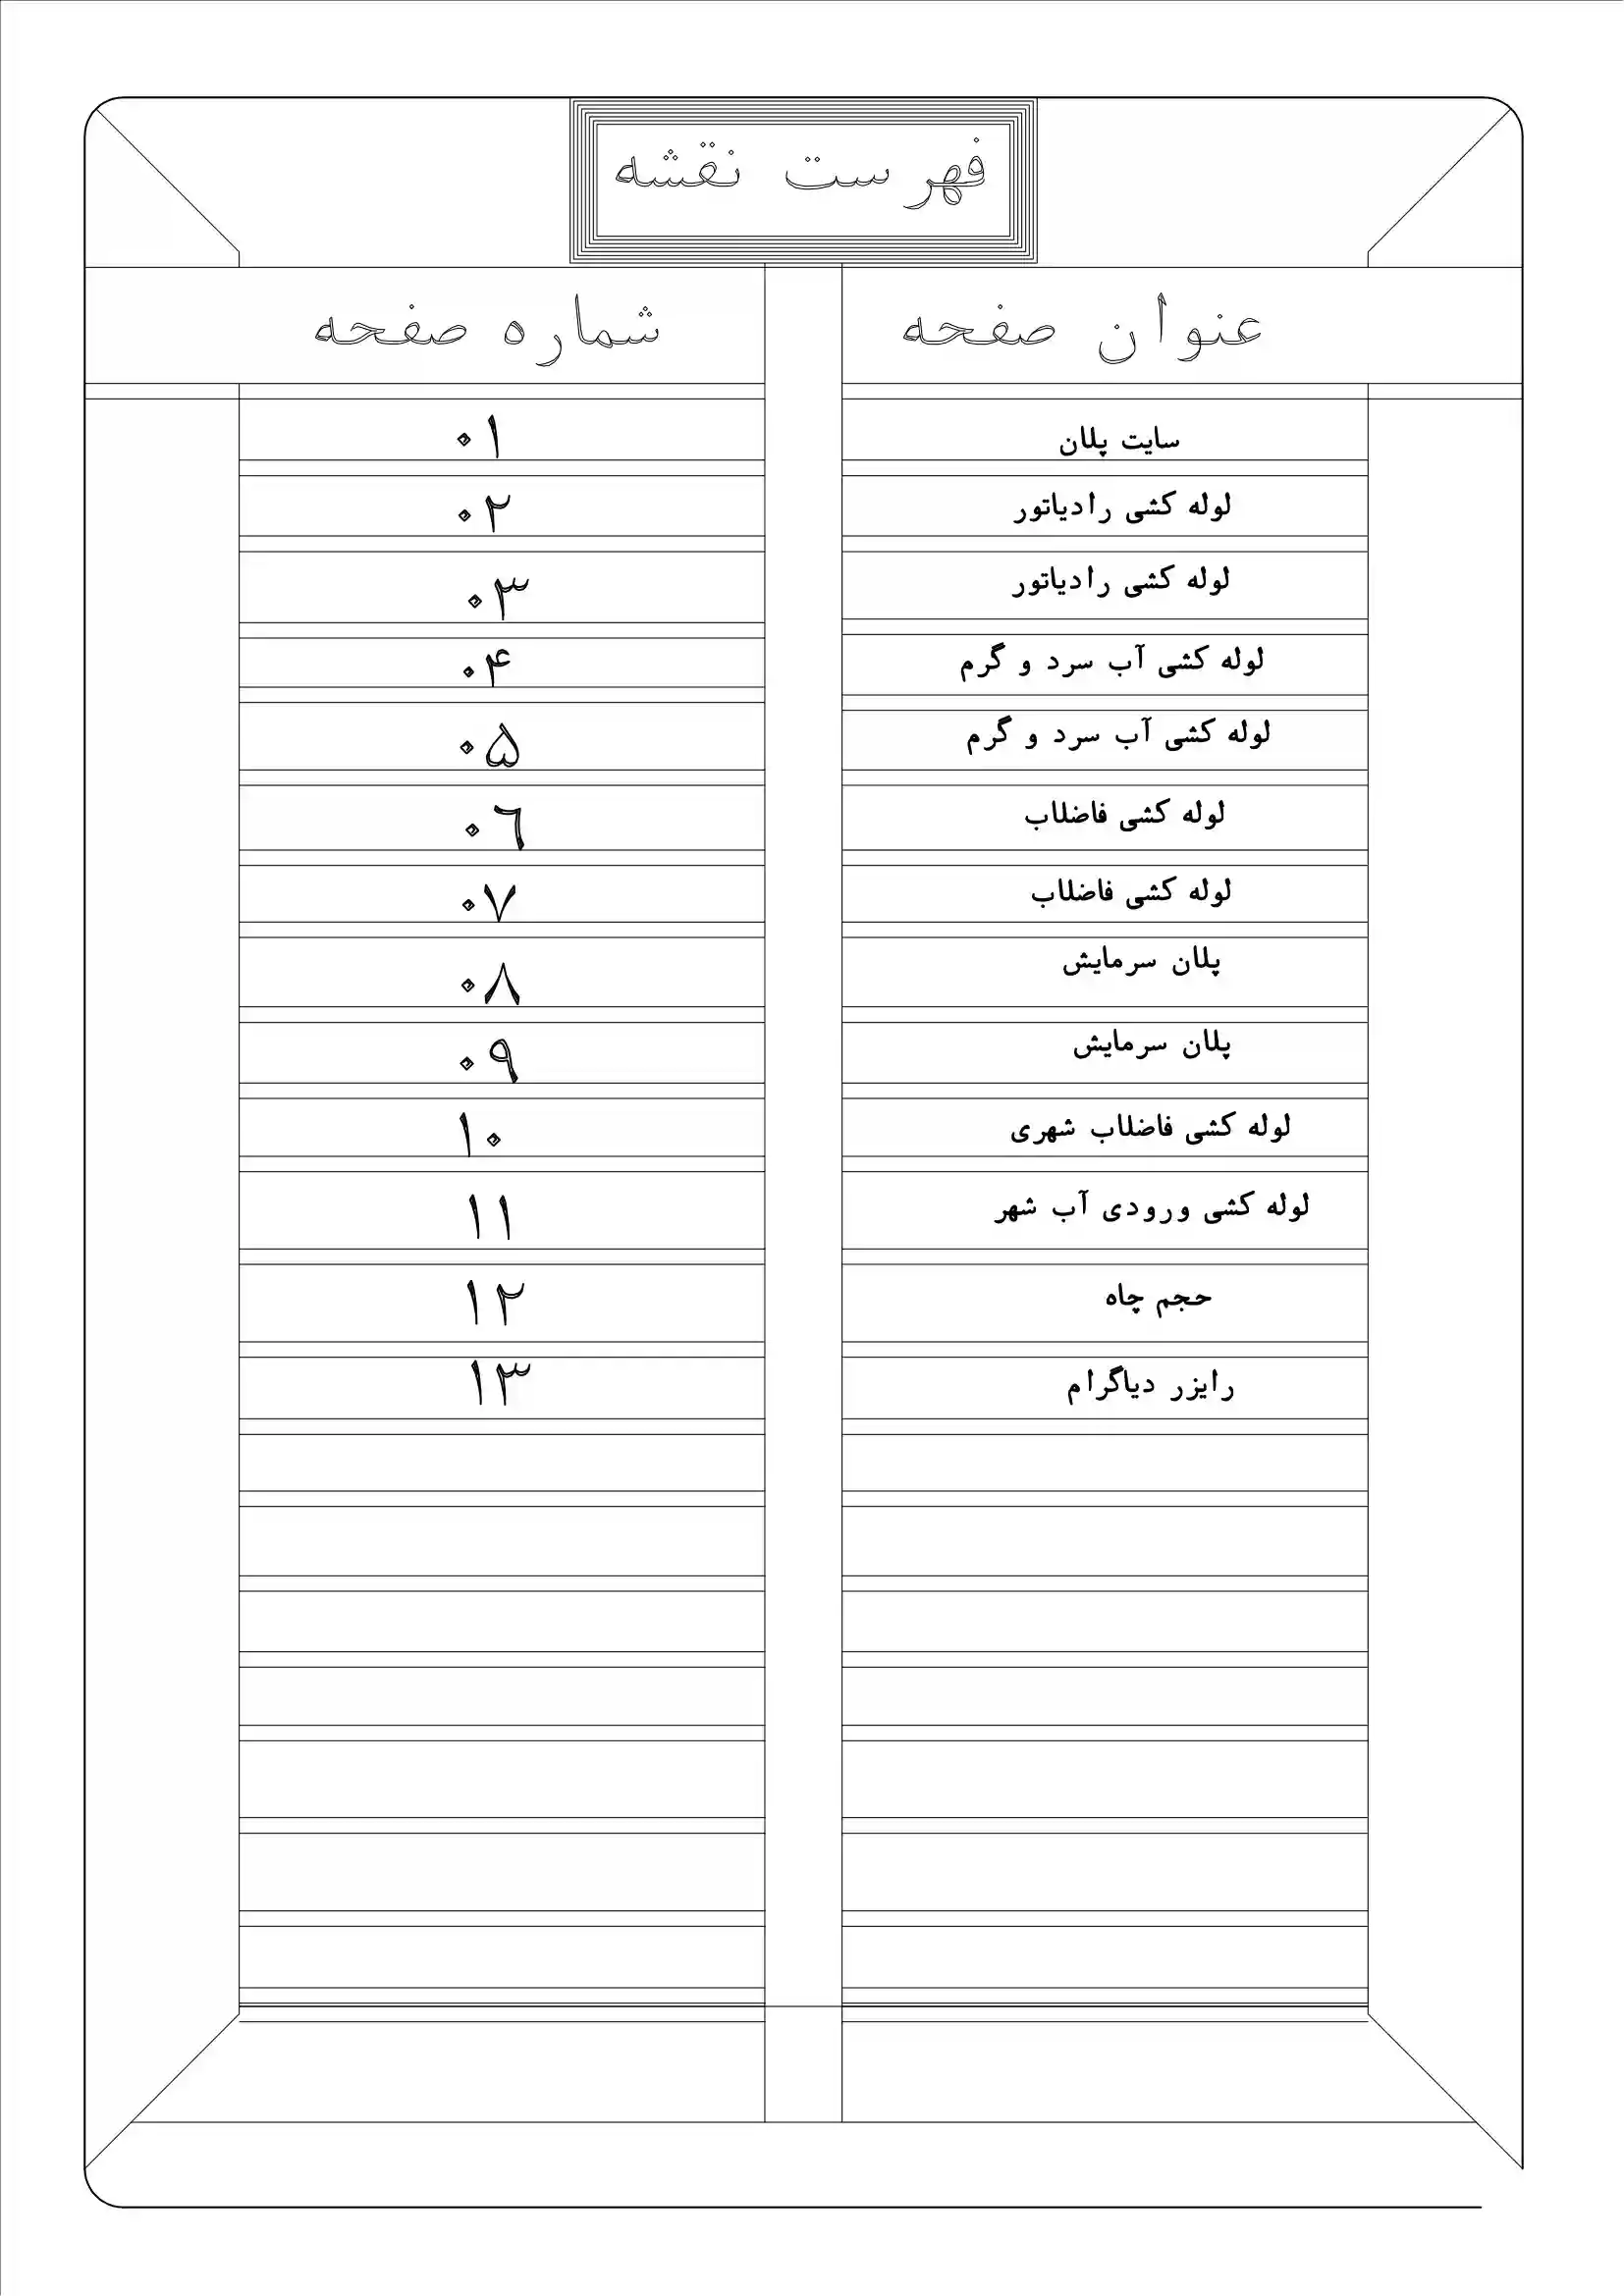 فهرست نقشه
عنوان صفحه شماره صفحه
سایت پلان ۰۱
لوله کشی رادیاتور ۰۲
لوله کشی رادیاتور ۰۳
لوله کشی آب سرد و گرم ۰۴
لوله کشی آب سرد و گرم ۰۵
لوله کشی فاضلاب ۰٦
لوله کشی فاضلاب ۰۷
پلان سرمایش ۰۸
پلان سرمایش ۰۹
لوله کشی فاضلاب شهری ۱۰
لوله کشی ورودی آب شهر ۱۱
حجم چاه ۱۲
رایزر دیاگرام ۱۳